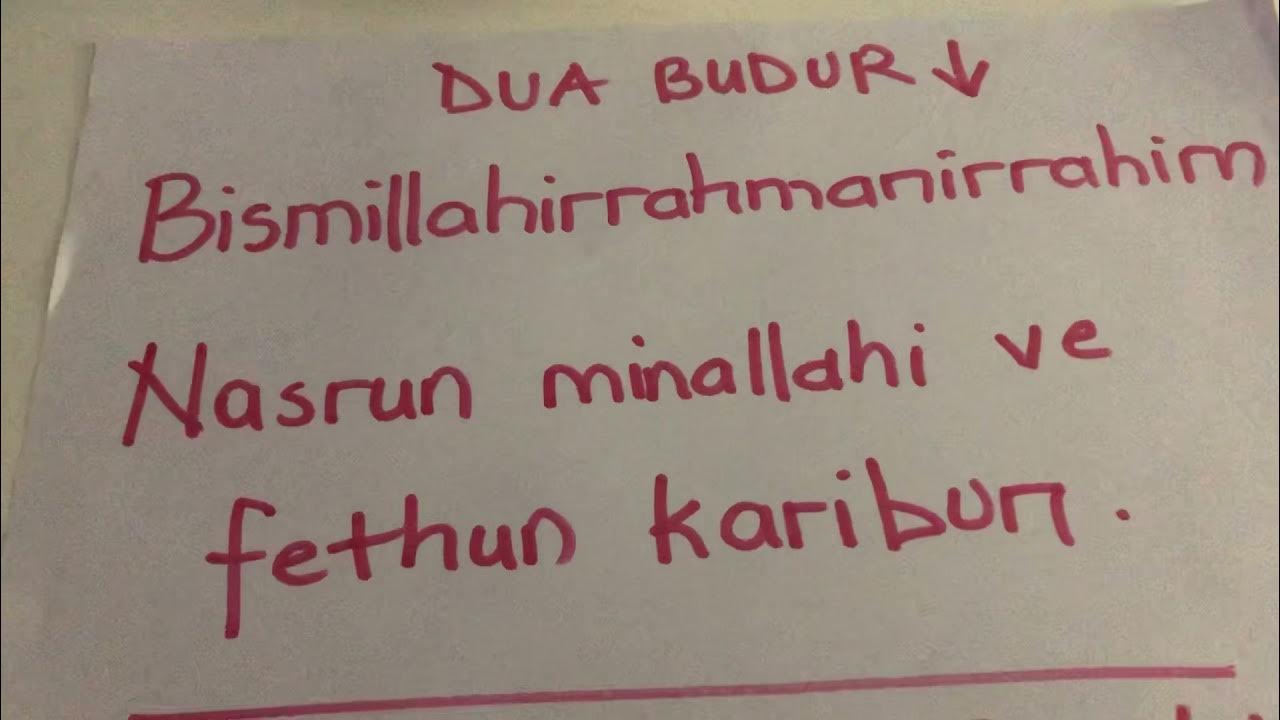 DUA BUDUR ↓
Bismillahirrahmanirrahim
Nasrun minallahi ve
fethun karibun.